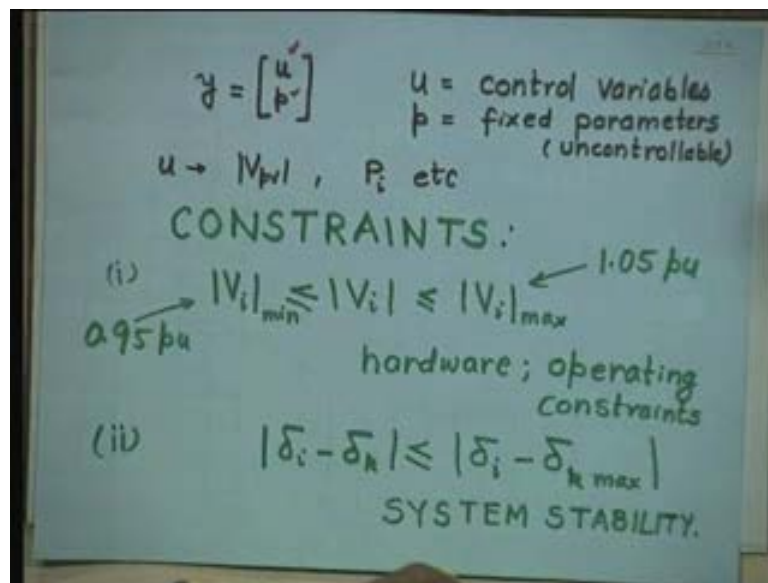 y = [u p]
u = control variables
p = fixed parameters
(uncontrollable)
u → |V_PV|, P_i etc
CONSTRAINTS:
(i) |V_i|_min ≤ |V_i| ≤ |V_i|_max
1.05 pu
0.95 pu
hardware; operating
constraints
(ii) |δ_i - δ_k| ≤ |δ_i - δ_k max|
SYSTEM STABILITY.